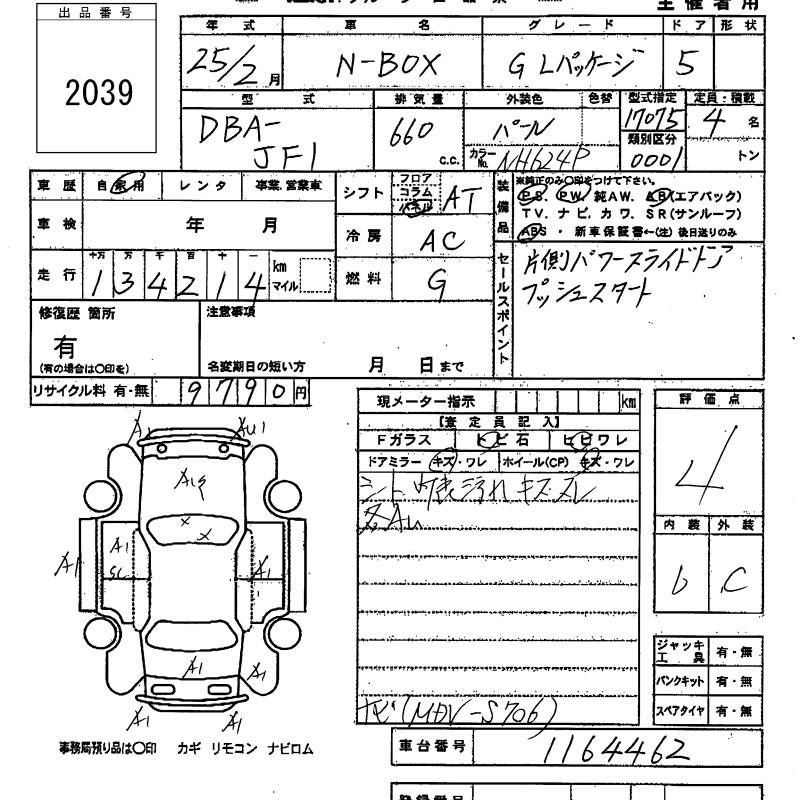 出品番号
2039
年式 車名 グレード ドア 形状
25/2月 N-BOX G Lパッケージ 5
型式 排気量 外装色 色替 型式指定 定員・積載
DBA-JF1 660 c.c. パール カラーNo. NH624P 17075 類別区分 0001 4 名 トン
車歴 自家用 レンタ 事業.営業車
シフト フロア コラム パネル AT
装備品 ※純正のみ〇印をつけて下さい。
PS. PW. 純AW. AB(エアバック)
TV. ナビ. カワ. SR(サンルーフ)
ABS ・ 新車保証書←(注) 後日送りのみ
車検 年 月
冷房 AC
走行 十万 万 千 百 十 一
134214 km マイル
燃料 G
セールスポイント
片側パワースライドドア
プッシュスタート
修復歴 箇所
有
(有の場合は〇印を)
注意事項
名変期日の短い方 月 日まで
リサイクル料 有・無 9790円
現メーター指示 km
【査定員記入】
Fガラス トビ石 ヒビワレ
ドアミラー キズ・ワレ ホイール(CP) キズ・ワレ
汚れ キズ スレ
ナビ(MDV-S706)
評価点
4
内装 外装
b C
A1 AU1
A1
A1 SC A1 A1
A1 A1
A1 A1
ジャッキ 工具 有・無
パンクキット 有・無
スペアタイヤ 有・無
事務局預り品は〇印 カギ リモコン ナビロム
車台番号 1164462